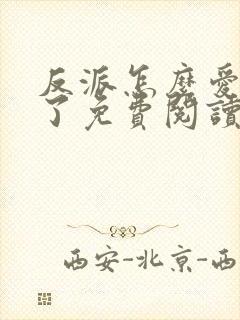 反派怎麽愛
了免費閱讀
西安-北京-西